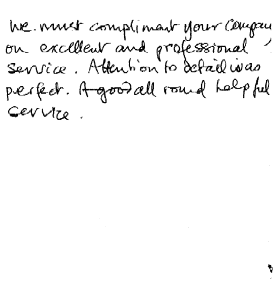 We must compliment your Company
on excellent and professional
Service. Attention to detail was
perfect. A good all round helpful
Service.